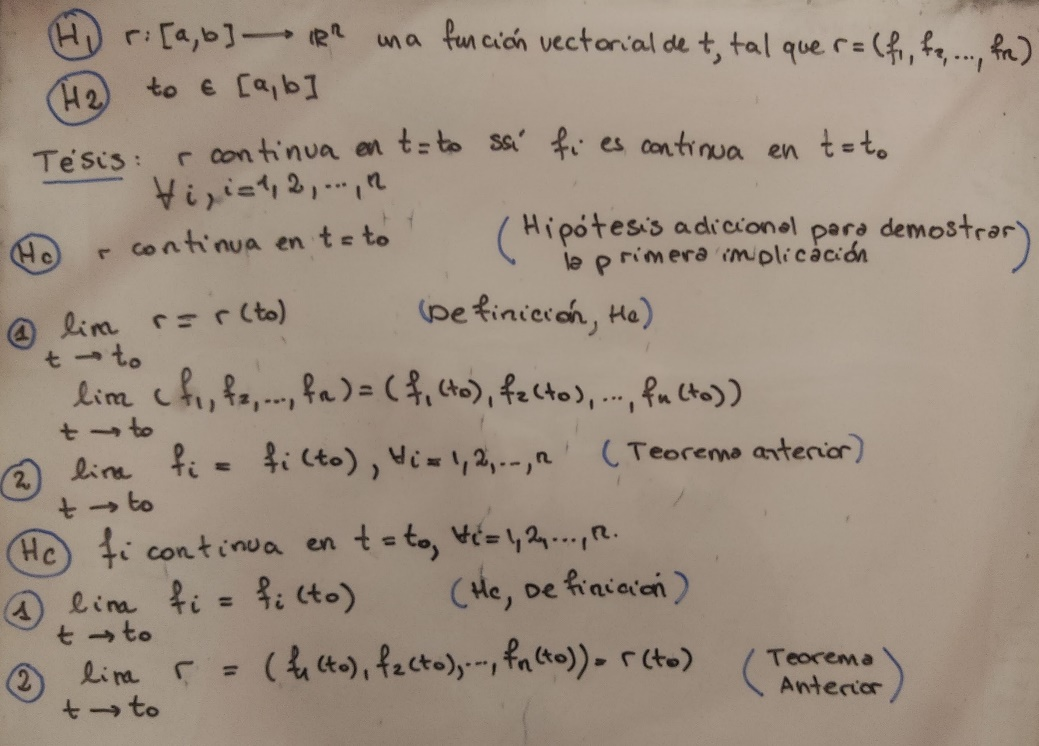 H1 r: [a,b] → ℝⁿ una función vectorial de t, tal que r = (f₁, f₂, ..., fₙ)
H2 to ∈ [a,b]
Tésis: r continua en t=to ssí fi es continua en t=to
∀i, i=1, 2, ..., n
Hc r continua en t=to (Hipótesis adicional para demostrar
la primera implicación)
1 lim r = r(to) (Definición, Hc)
t → to
lim (f₁, f₂, ..., fₙ) = (f₁(to), f₂(to), ..., fₙ(to))
t → to
2 lim fi = fi(to), ∀i=1,2,..,n (Teorema anterior)
t → to
Hc fi continua en t=to, ∀i=1,2,...,n.
1 lim fi = fi(to) (Hc, Definición)
t → to
2 lim r = (f₁(to), f₂(to), ..., fₙ(to)) = r(to) (Teorema
Anterior)
t → to